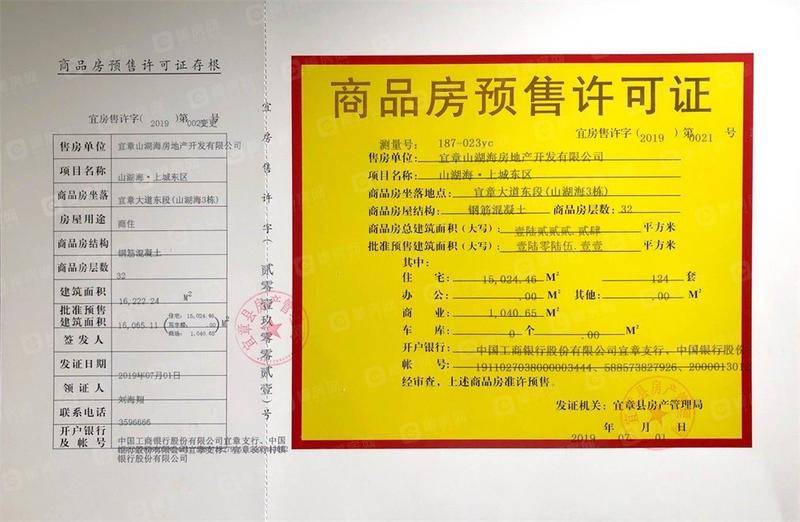 商品房预售许可证存根
宜房售许字(2019)第002变更号
售房单位 宜章山湖海房地产开发有限公司
项目名称 山湖海·上城东区
商品房坐落 宜章大道东段(山湖海3栋)
房屋用途 商住
商品房结构 钢筋混凝土
商品房层数 32
建筑面积 16,222.24 M²
批准预售
建筑面积 16,065.11 (住宅: 15,024.46 .00 商场: 1,040.65) M²
签发人
发证日期 2019年07月01日
领证人 刘海翔
联系电话 3596666
开户银行
及帐号 中国工商银行股份有限公司宜章支行、中国
银行股份有限公司
宜房售许字(贰零壹玖零零贰壹)号
宜章县房产管
商品房预售许可证
宜房售许字(2019)第0021号
测量号: 187-023yc
售房单位: 宜章山湖海房地产开发有限公司
项目名称: 山湖海·上城东区
商品房坐落地点: 宜章大道东段(山湖海3栋)
商品房屋结构: 钢筋混凝土 商品房层数: 32
商品房总建筑面积(大写): 壹陆贰贰贰.贰肆 平方米
批准预售建筑面积(大写): 壹陆零陆伍.壹壹 平方米
其中:
住宅: 15,024.46 M² 124 套
办公: .00 M² 其他: .00 M²
商业: 1,040.65 M²
车库: 0 个 .00 M²
开户银行: 中国工商银行股份有限公司宜章支行、中国银行股份
帐号: 1911027038000003444、588573827926、2000013012
经审查,上述商品房准许预售。
发证机关: 宜章县房产管理局
2019 年 07 月 01 日